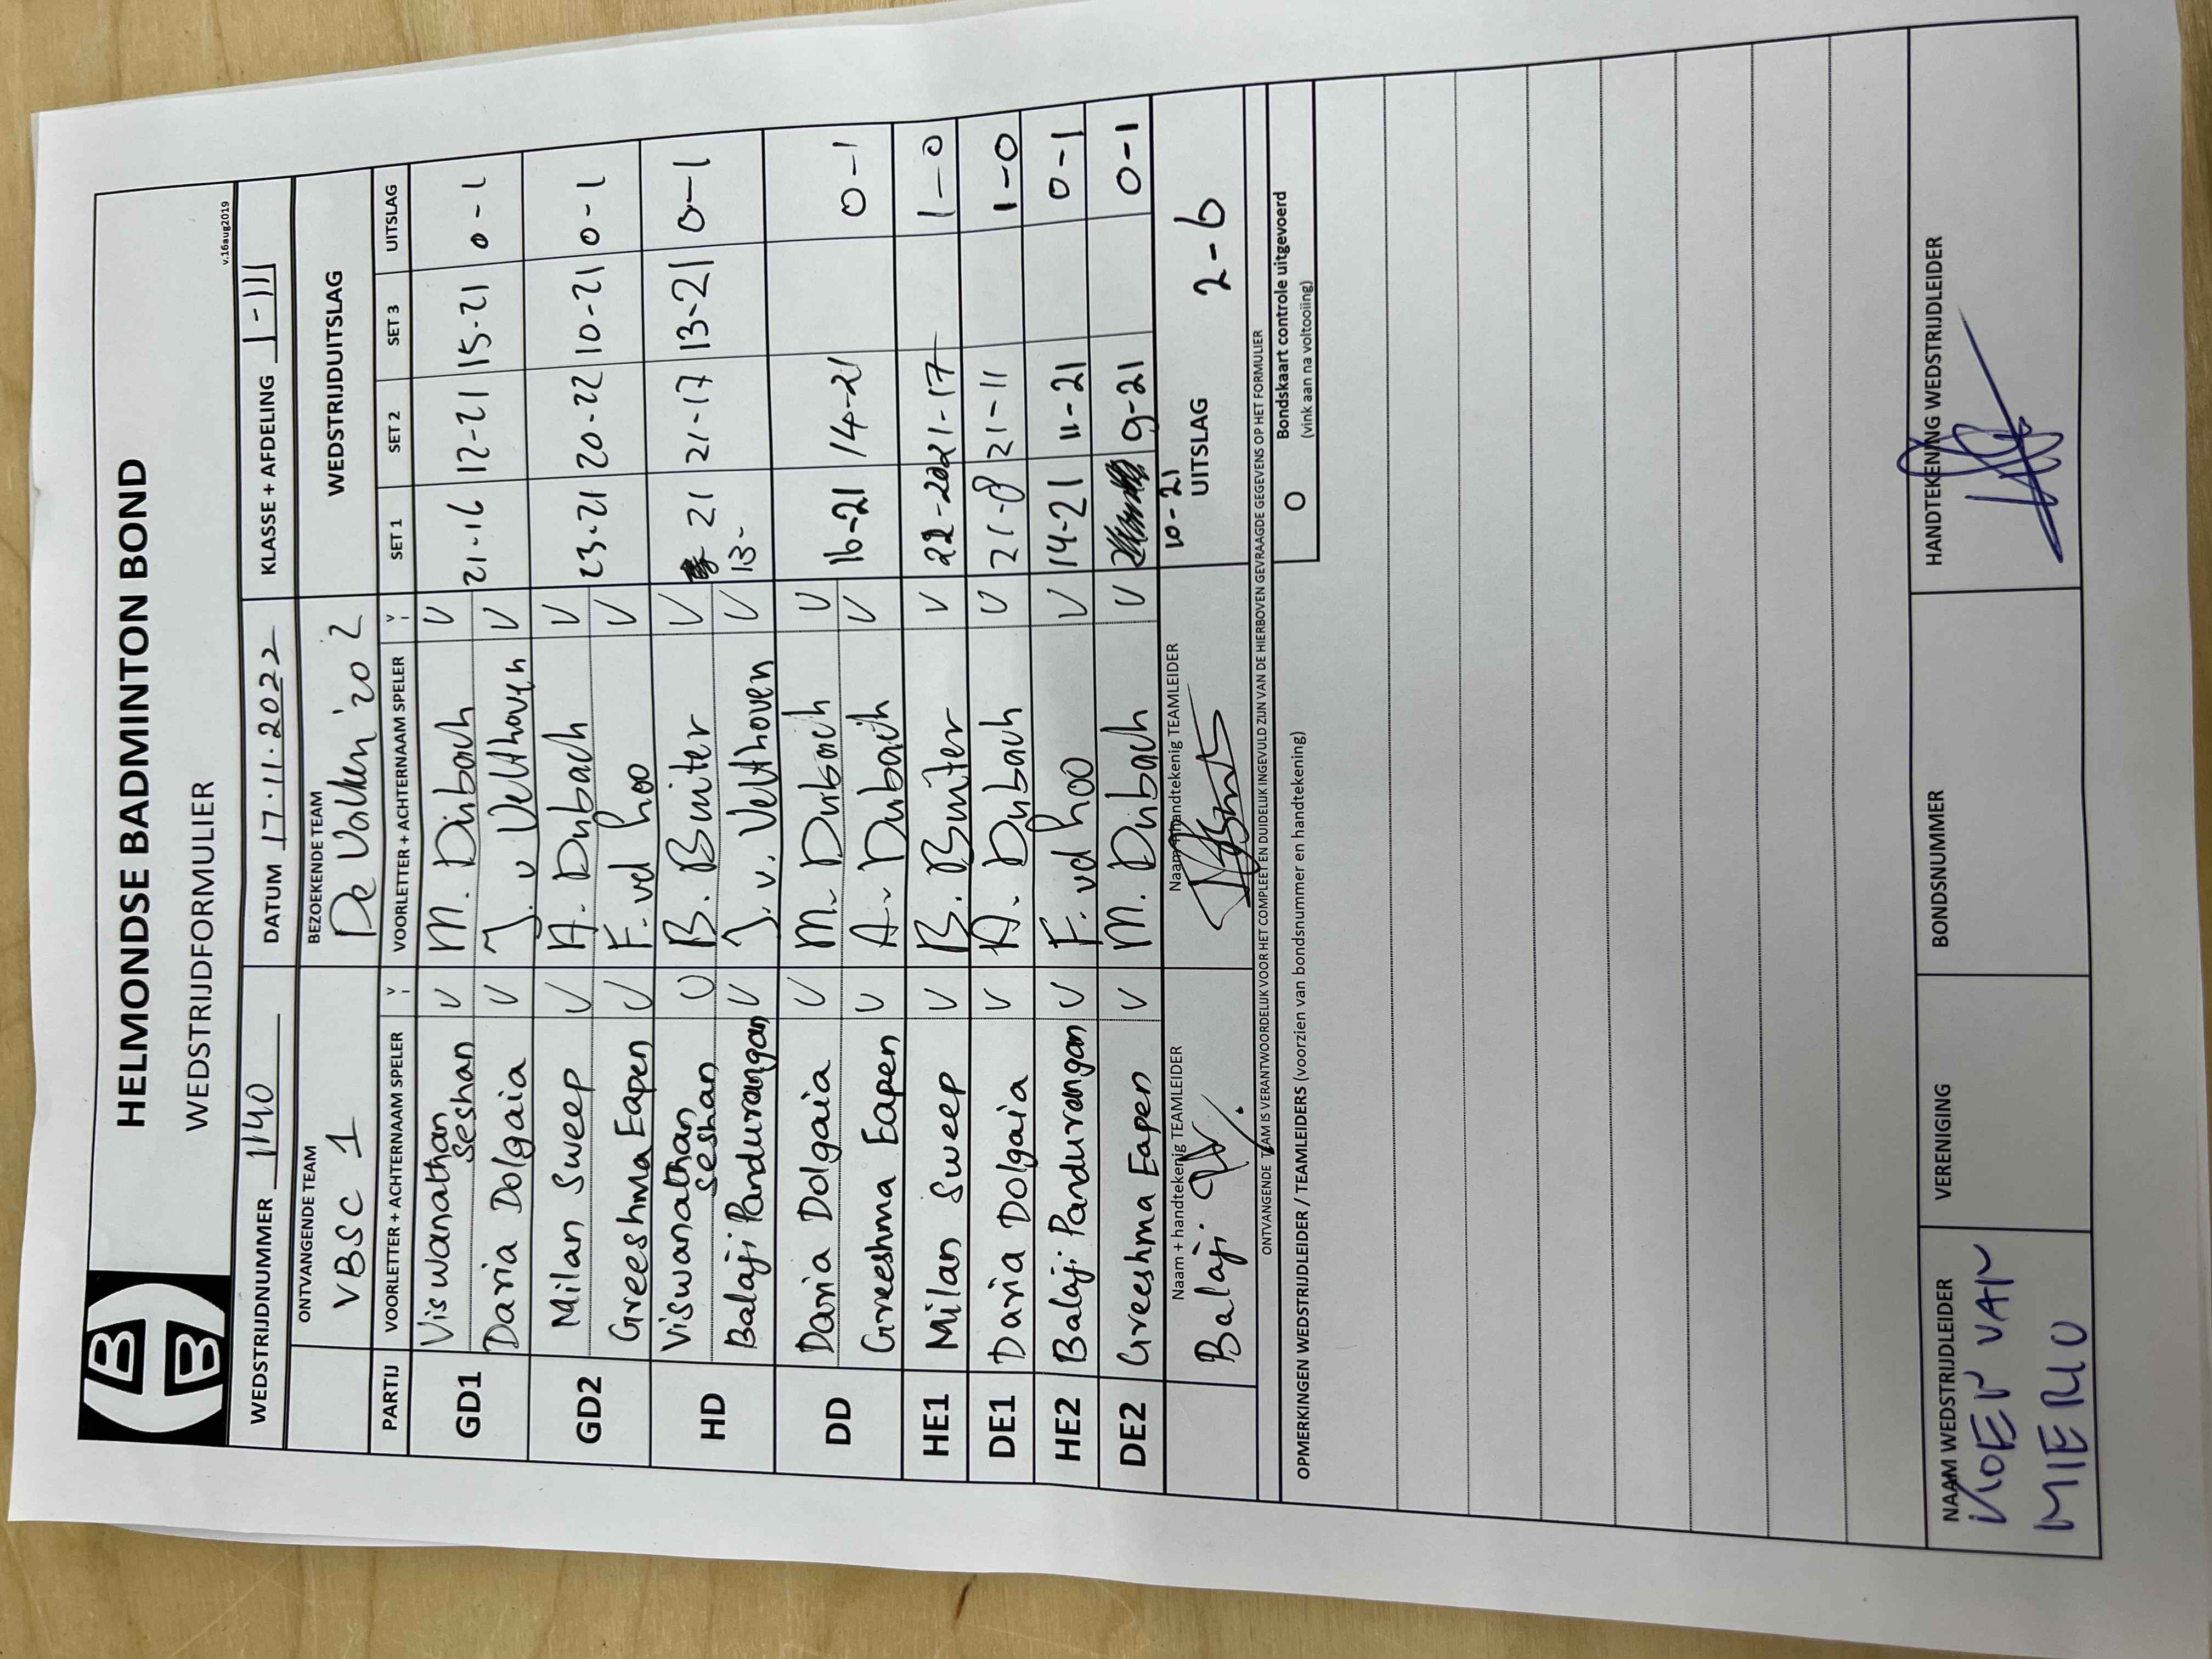 HELMONDSE BADMINTON BOND
WEDSTRIJDFORMULIER
v.16aug2019
WEDSTRIJDNUMMER 1140 DATUM 17.11.2022 KLASSE + AFDELING 1-III
ONTVANGENDE TEAM BEZOEKENDE TEAM WEDSTRIJDUITSLAG
VBSC 1 De Valken '20 2
PARTIJ VOORLETTER + ACHTERNAAM SPELER V VOORLETTER + ACHTERNAAM SPELER V SET 1 SET 2 SET 3 UITSLAG
GD1 Viswanathan Seshan V M. Dubach V 21-16 12-21 15-21 0-1
Daria Dolgaia V J. v Velthoven V
GD2 Milan Sweep V A. Dubach V 23-21 20-22 10-21 0-1
Greeshma Eapen V F. vd hoo V
HD Viswanathan Seshan V B. Buiter V 21 21-17 13-21 0-1
Balaji Pandurangan V J. v. Velthoven V 13-
DD Daria Dolgaia V M. Dubach V 16-21 14-21 0-1
Greeshma Eapen V A. Dubach V
HE1 Milan Sweep V B. Buiter V 22-20 21-17 1-0
DE1 Daria Dolgaia V A. Dubach V 21-8 21-11 1-0
HE2 Balaji Pandurangan V F. vd hoo V 14-21 11-21 0-1
DE2 Greeshma Eapen V M. Dubach V 9-21 0-1
10-21
Naam + handtekenig TEAMLEIDER Naam + handtekenig TEAMLEIDER UITSLAG 2-6
Balaji.
ONTVANGENDE TEAM IS VERANTWOORDELIJK VOOR HET COMPLEET EN DUIDELIJK INGEVULD ZIJN VAN DE HIERBOVEN GEVRAAGDE GEGEVENS OP HET FORMULIER
OPMERKINGEN WEDSTRIJDLEIDER / TEAMLEIDERS (voorzien van bondsnummer en handtekening)
O Bondskaart controle uitgevoerd
(vink aan na voltooiing)
NAAM WEDSTRIJDLEIDER VERENIGING BONDSNUMMER HANDTEKENING WEDSTRIJDLEIDER
KOEN VAN
MIERLO